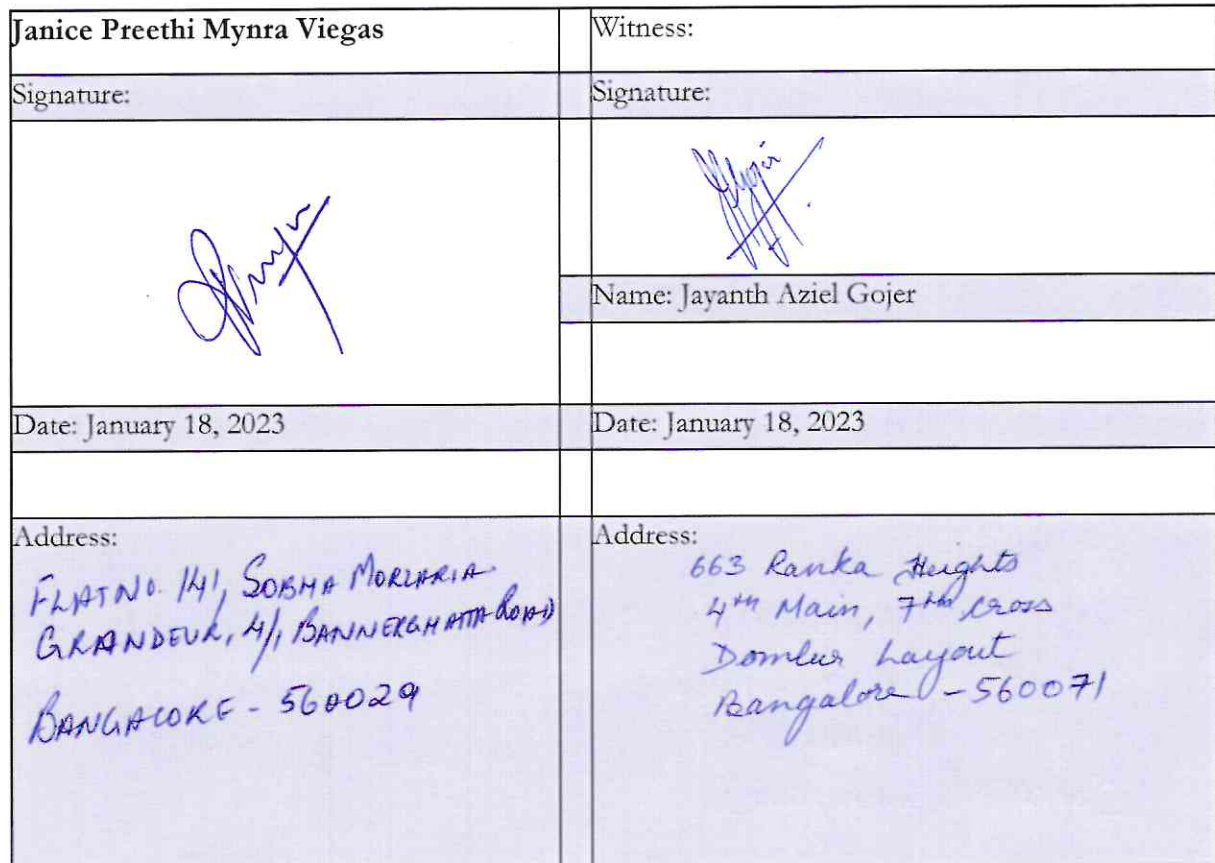 Janice Preethi Mynra Viegas
Signature:
Witness:
Signature:
Gojer
Name: Jayanth Aziel Gojer
Date: January 18, 2023
Date: January 18, 2023
Address:
FLAT NO. 141, SOBHA MORZARIA
GRANDEUR, 4/1, BANNERGHATTA ROAD
BANGALORE - 560029
Address:
663 Ranka Heights
4th Main, 7th cross
Domlur Layout
Bangalore - 560071